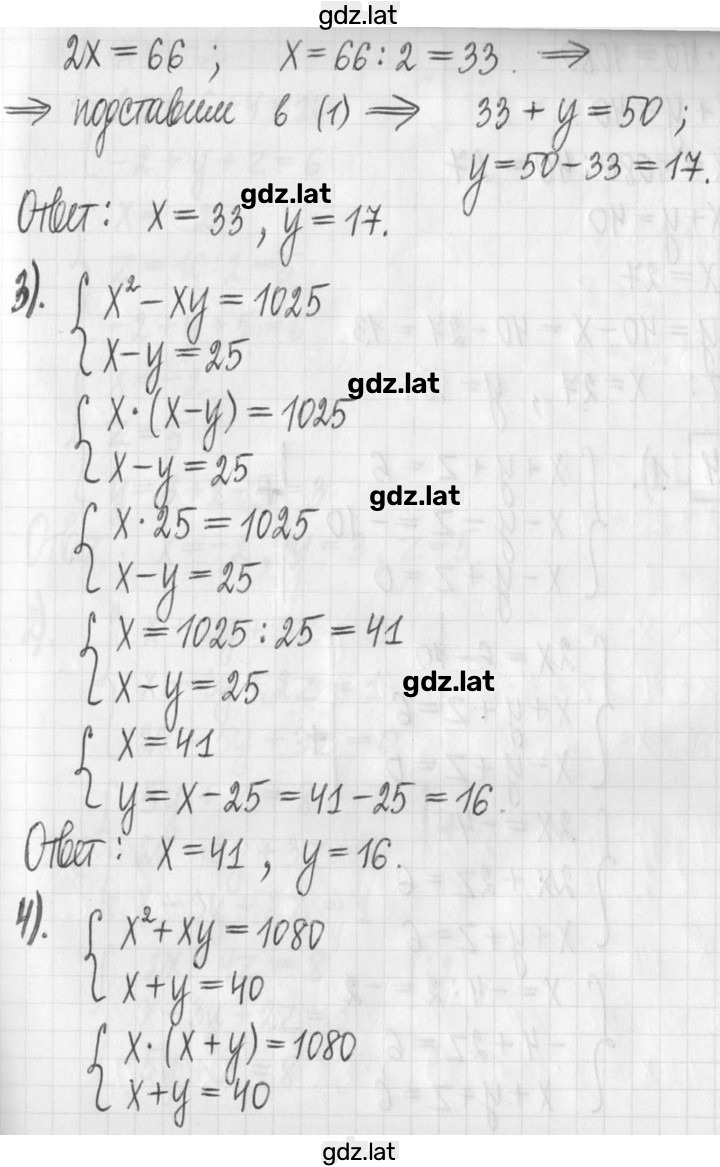 gdz.lat
2x = 66 ; x = 66 : 2 = 33. ⟹
⟹ подставим в (1) ⟹ 33 + y = 50 ;
y = 50 - 33 = 17.
gdz.lat
Ответ: x = 33, y = 17.
3). { x² - xy = 1025
x - y = 25
gdz.lat
{ x · (x - y) = 1025
x - y = 25
gdz.lat
{ x · 25 = 1025
x - y = 25
{ x = 1025 : 25 = 41
x - y = 25
gdz.lat
{ x = 41
y = x - 25 = 41 - 25 = 16.
Ответ: x = 41, y = 16.
4). { x² + xy = 1080
x + y = 40
{ x · (x + y) = 1080
x + y = 40
gdz.lat